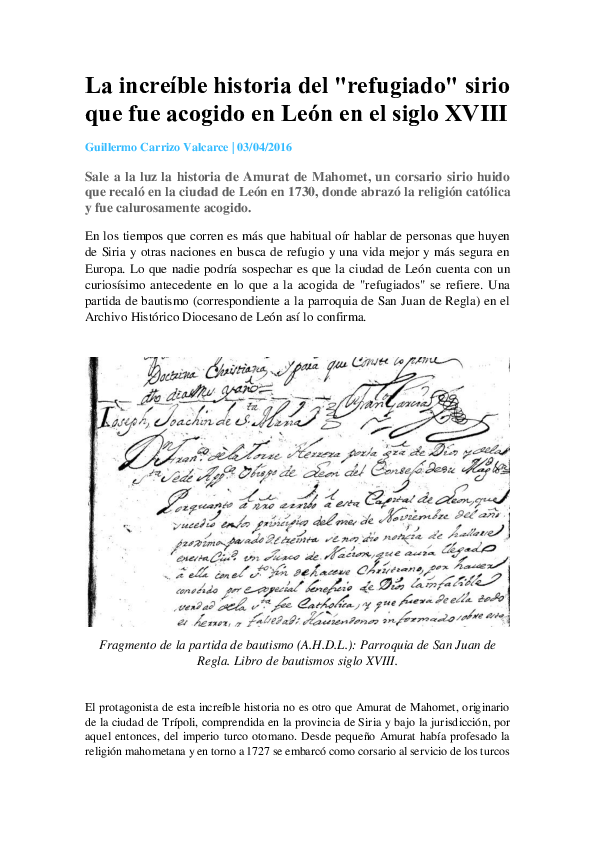 La increíble historia del "refugiado" sirio
que fue acogido en León en el siglo XVIII
Guillermo Carrizo Valcarce | 03/04/2016
Sale a la luz la historia de Amurat de Mahomet, un corsario sirio huido
que recaló en la ciudad de León en 1730, donde abrazó la religión católica
y fue calurosamente acogido.
En los tiempos que corren es más que habitual oír hablar de personas que huyen
de Siria y otras naciones en busca de refugio y una vida mejor y más segura en
Europa. Lo que nadie podría sospechar es que la ciudad de León cuenta con un
curiosísimo antecedente en lo que a la acogida de "refugiados" se refiere. Una
partida de bautismo (correspondiente a la parroquia de San Juan de Regla) en el
Archivo Histórico Diocesano de León así lo confirma.
Doctrina Christiana, y para que Conste lo
dho dia mes y año
Joseph, Joachin de Sta Maria
Dn Fran.co de la Torre Herrera por la gra de Dios y de la
Sta Sede Appca Obispo de Leon del Consejo de su Magd
Porquanto a a esta Capital de Leon, que
sucedio en los principios del mes de Noviembre del año
proximo pasado de treinta se nos dio noticia de hallarse
en esta Ciud un Turco de Nacion, que auia llegado
a ella con el fin de hacerse Christiano, por hauer
conocido por especial beneficio de Dios la infalible
verdad de la sta fee Catholica, y que fuera de ella todo
es herror, y falsedad: Hauiendonos informado sobre esto
Fragmento de la partida de bautismo (A.H.D.L.): Parroquia de San Juan de
Regla. Libro de bautismos siglo XVIII.
El protagonista de esta increíble historia no es otro que Amurat de Mahomet, originario
de la ciudad de Trípoli, comprendida en la provincia de Siria y bajo la jurisdicción, por
aquel entonces, del imperio turco otomano. Desde pequeño Amurat había profesado la
religión mahometana y en torno a 1727 se embarcó como corsario al servicio de los turcos